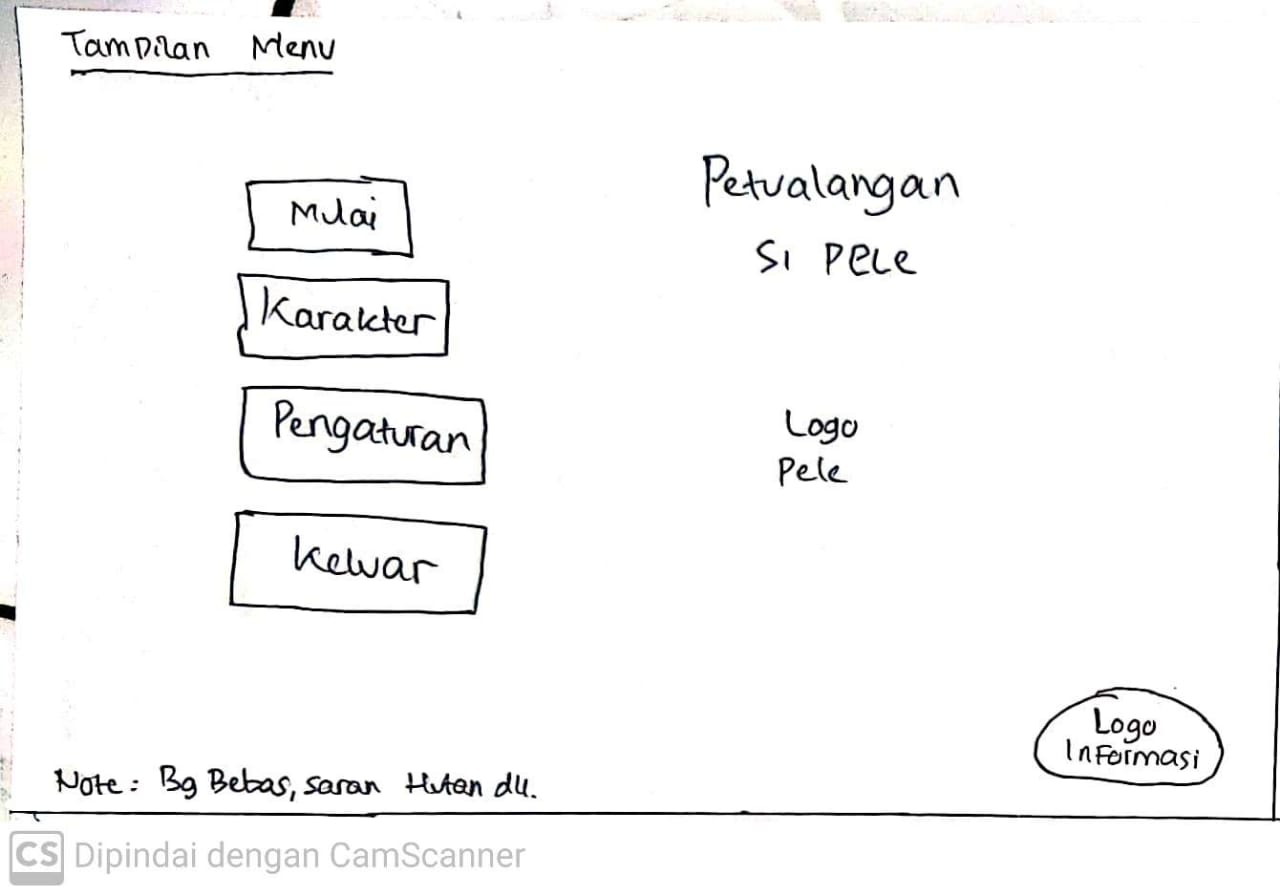 Tampilan Menu
Mulai
Karakter
Pengaturan
Keluar
Petualangan
Si Pele
Logo
Pele
Logo
Informasi
Note: Bg Bebas, saran Hutan dll.
CS Dipindai dengan CamScanner